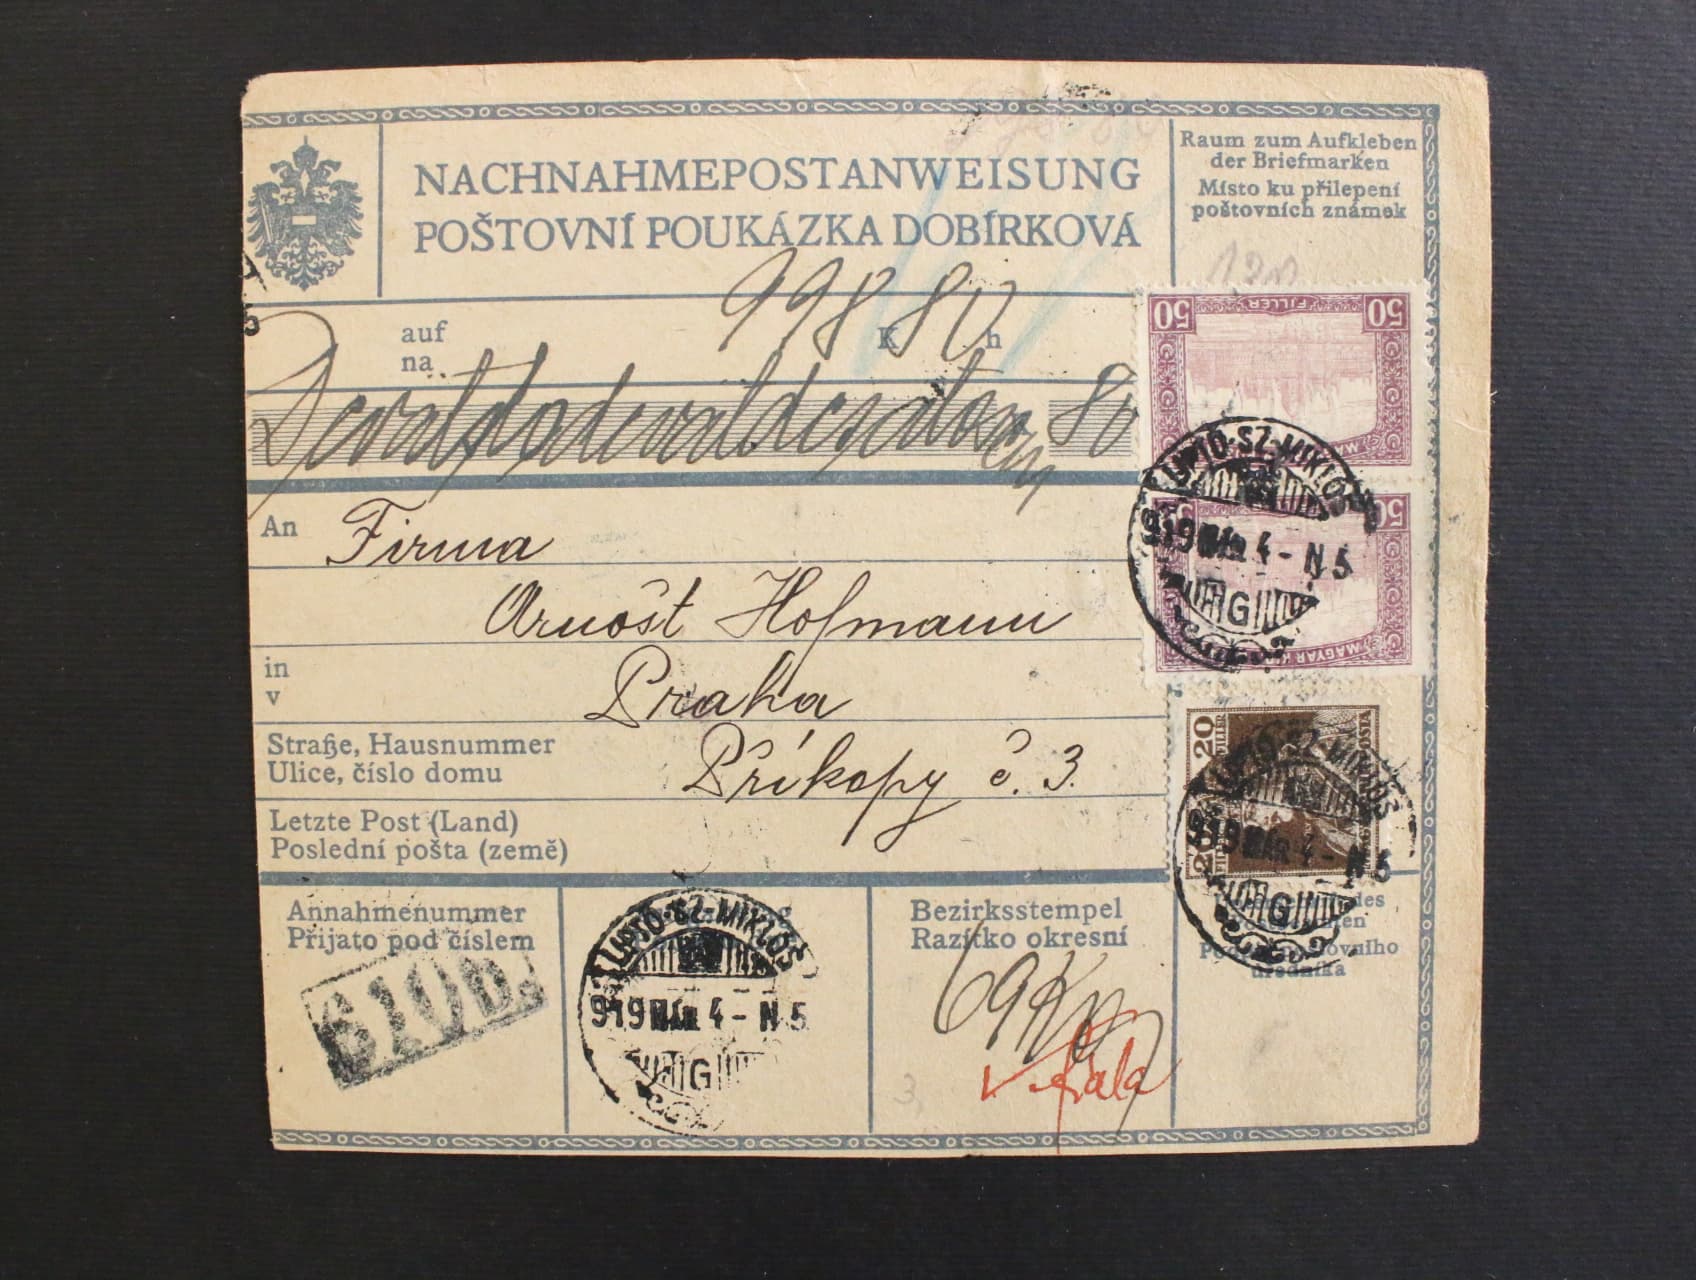 NACHNAHMEPOSTANWEISUNG
POŠTOVNÍ POUKÁZKA DOBÍRKOVÁ
Raum zum Aufkleben
der Briefmarken
Místo ku přilepení
poštovních známek
120
auf
na
998 K 80 h
80
An Firma
Arnošt Hofmann
in
v
Praha
Straße, Hausnummer
Ulice, číslo domu
Příkopy č. 3.
Letzte Post (Land)
Poslední pošta (země)
50 FILLÉR 50
LIPTÓ-SZ-MIKLÓS
919 MÁR 4 - N 5
G
50
MAGYAR
20
FILLÉR
POSTA
LIPTÓ-SZ-MIKLÓS
919 MÁR 4 - N 5
G
Annahmenummer
Přijato pod číslem
610b.
LIPTÓ-SZ-MIKLÓS
919 MÁR 4 - N 5
G
Bezirksstempel
Razítko okresní
des
úředníka
3.